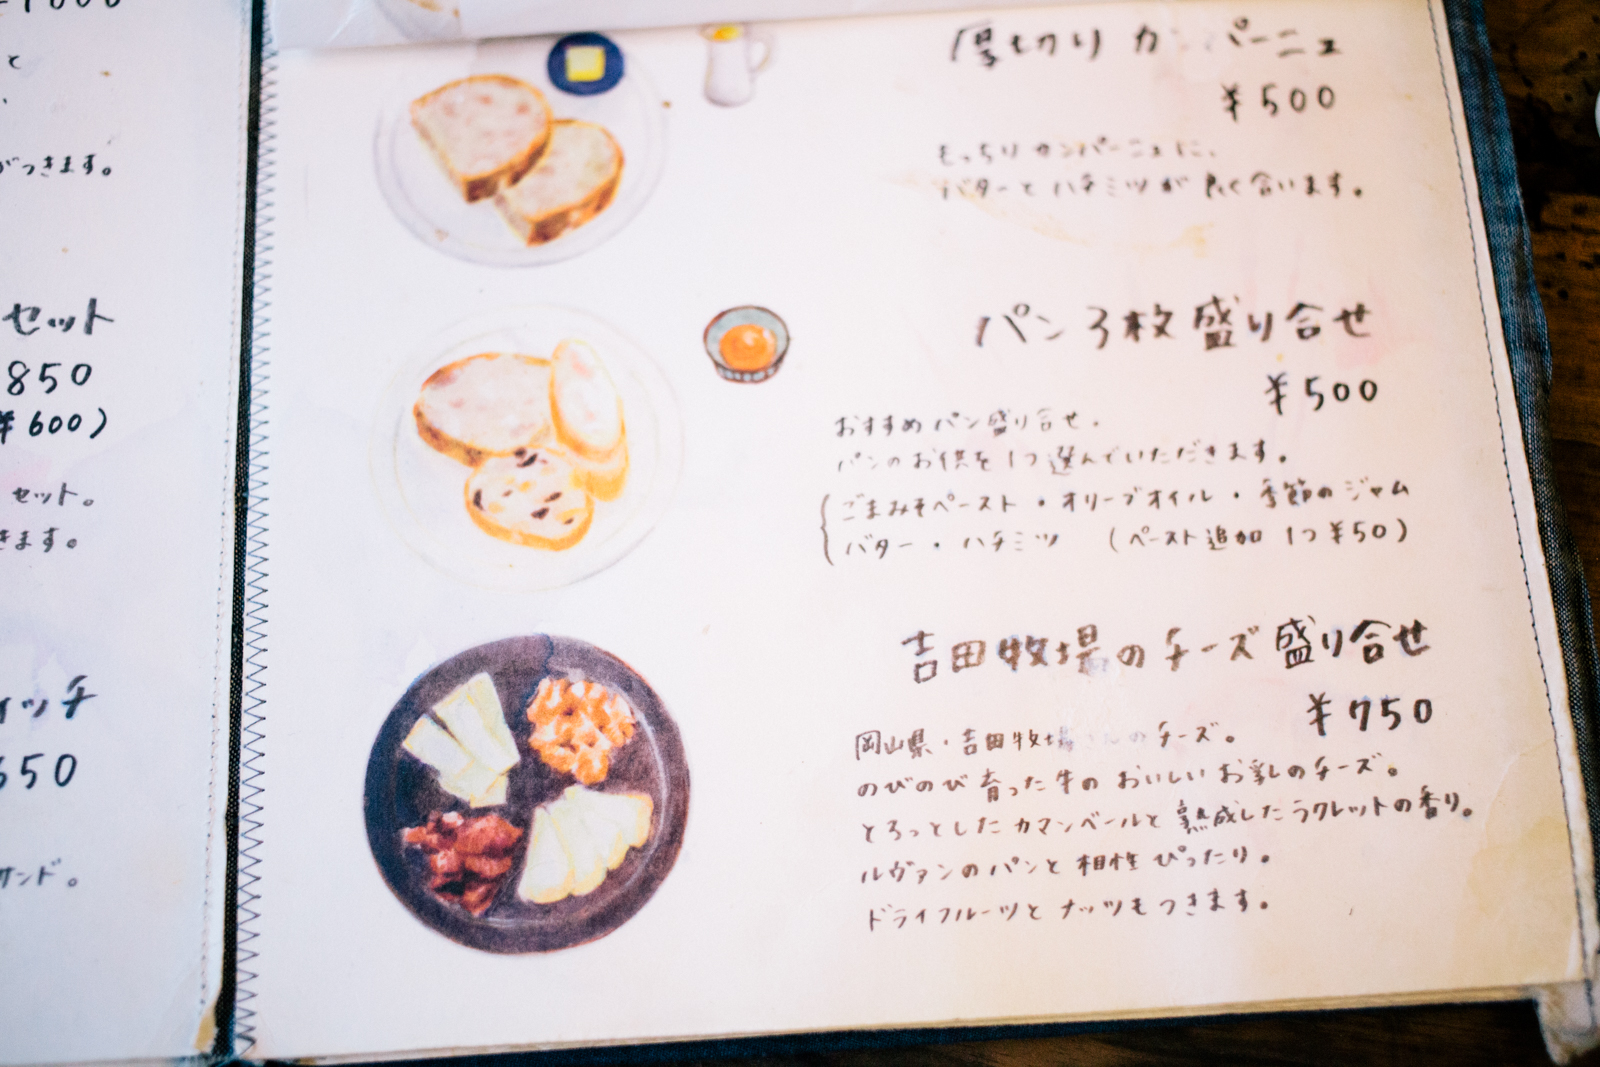 と
がつきます。
セット
850
(¥600)
セット。
きます。
ィッチ
650
サンド。
厚切りカンパーニュ
¥500
もっちりカンパーニュに、
バターとハチミツが良く合います。
パン3枚盛り合せ
¥500
おすすめパン盛り合せ。
パンのお供を1つ選んでいただきます。
ごまみそペースト・オリーブオイル・季節のジャム
バター・ハチミツ (ペースト追加 1つ¥50)
吉田牧場のチーズ盛り合せ
¥750
岡山県・吉田牧場さんのチーズ。
のびのび育った牛のおいしいお乳のチーズ。
とろっとしたカマンベールと熟成したラクレットの香り。
ルヴァンのパンと相性ぴったり。
ドライフルーツとナッツもつきます。